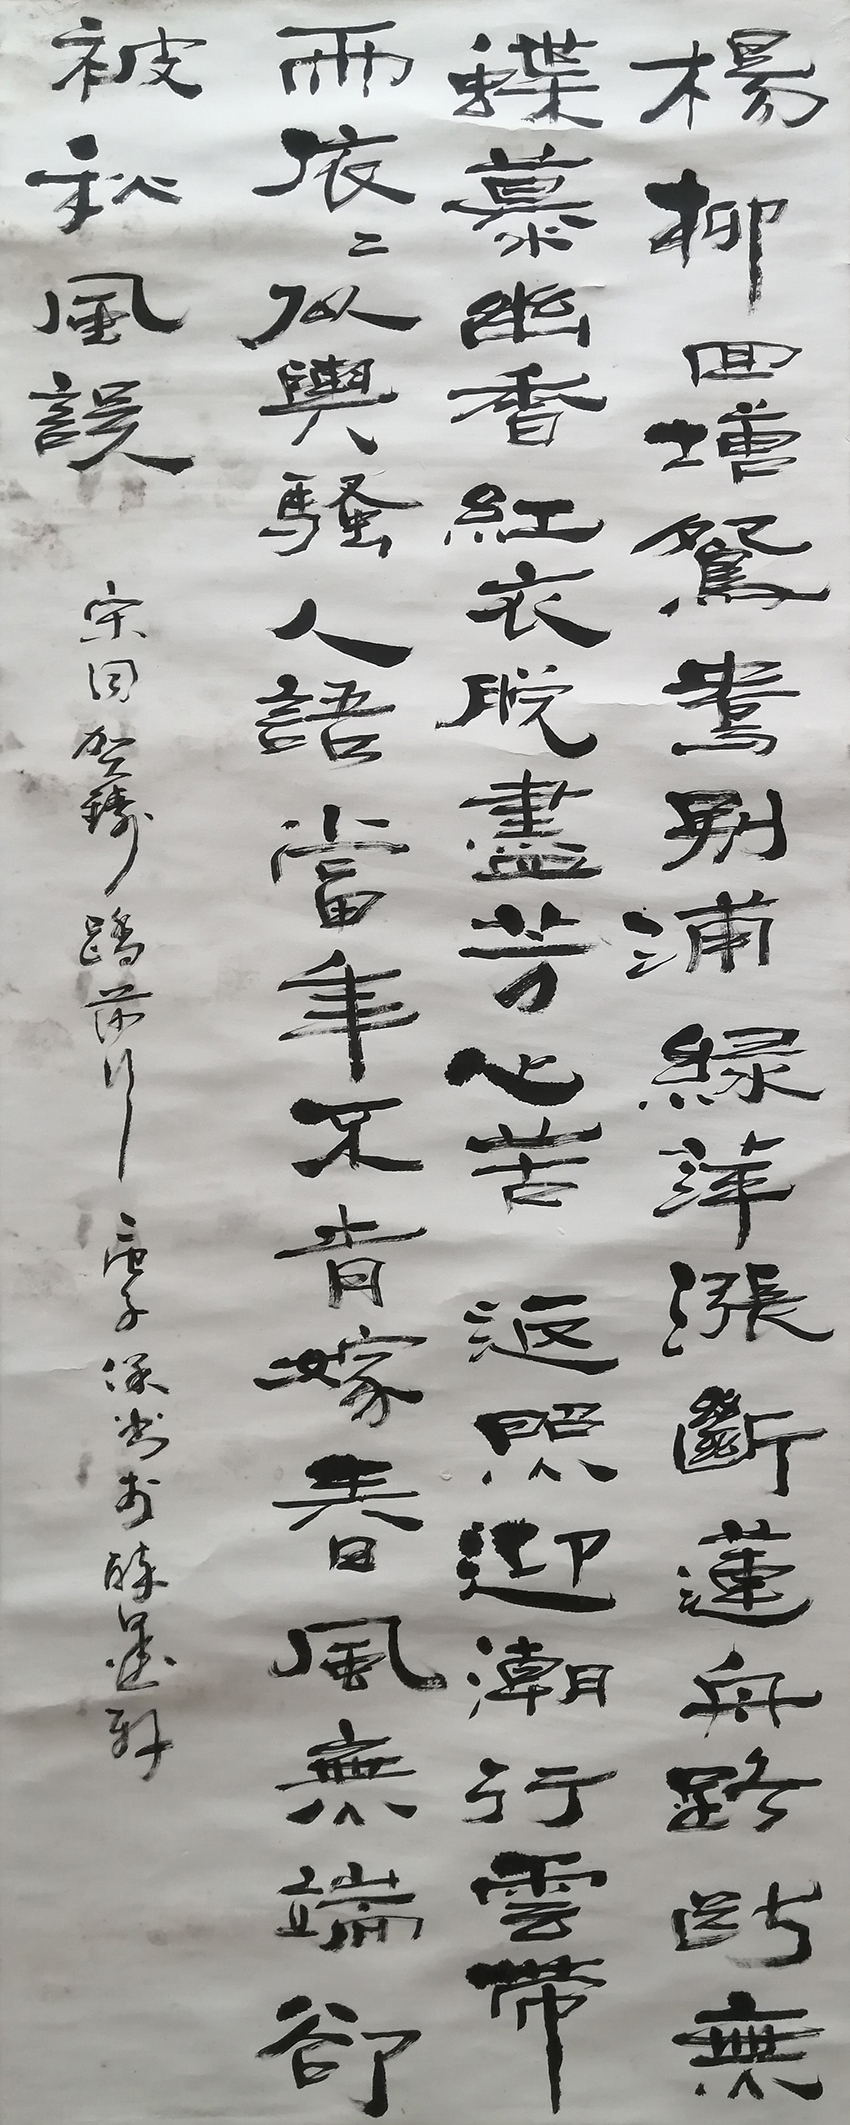 楊柳回塘鴛鴦別浦綠萍漲斷蓮舟路斷無
蝶慕幽香紅衣脫盡芳心苦 返照迎潮行雲帶
雨依二似與騷人語當年不肯嫁春風無端卻
被秋風誤
宋词賀鑄踏莎行 庚子深秋於醉墨軒